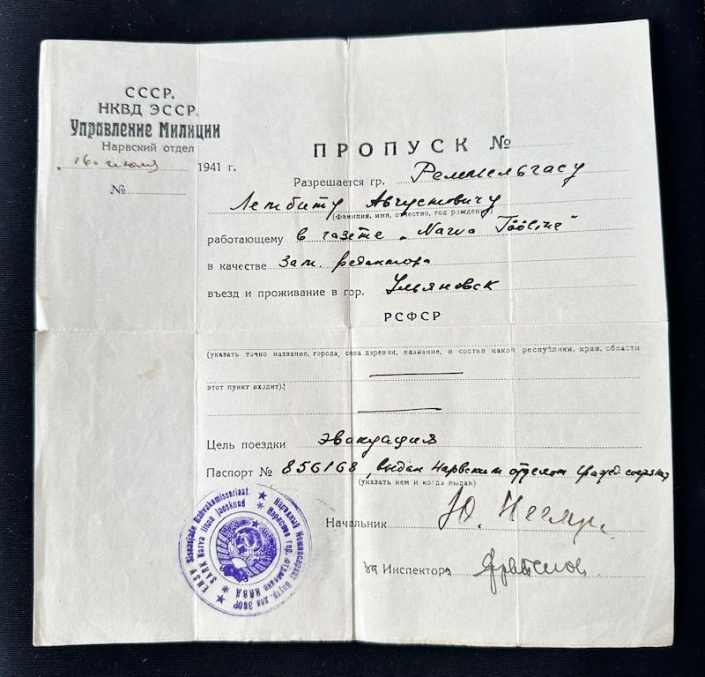 СССР.
НКВД ЭССР.
Управление Милиции
Нарвский отдел
"16" июля 1941 г.
№
ПРОПУСК №
Разрешается гр.
Лембиту Августовичу
(фамилия, имя, отчество, год рождения)
работающему в газете „Narva Tööline"
в качестве Зам. редактора
въезд и проживание в гор. Ульяновск
РСФСР
(указать точно название, города, села деревни, название, и состав какой республики, края, области
этот пункт входит).
Цель поездки эвакуация
Паспорт № 856168, выдан Нарвским отделом
(указать кем и когда выдан)
Начальник
Инспектор
ENSV Siseasjade Rahvakomissariaat
SARK Narva linna jaoskond